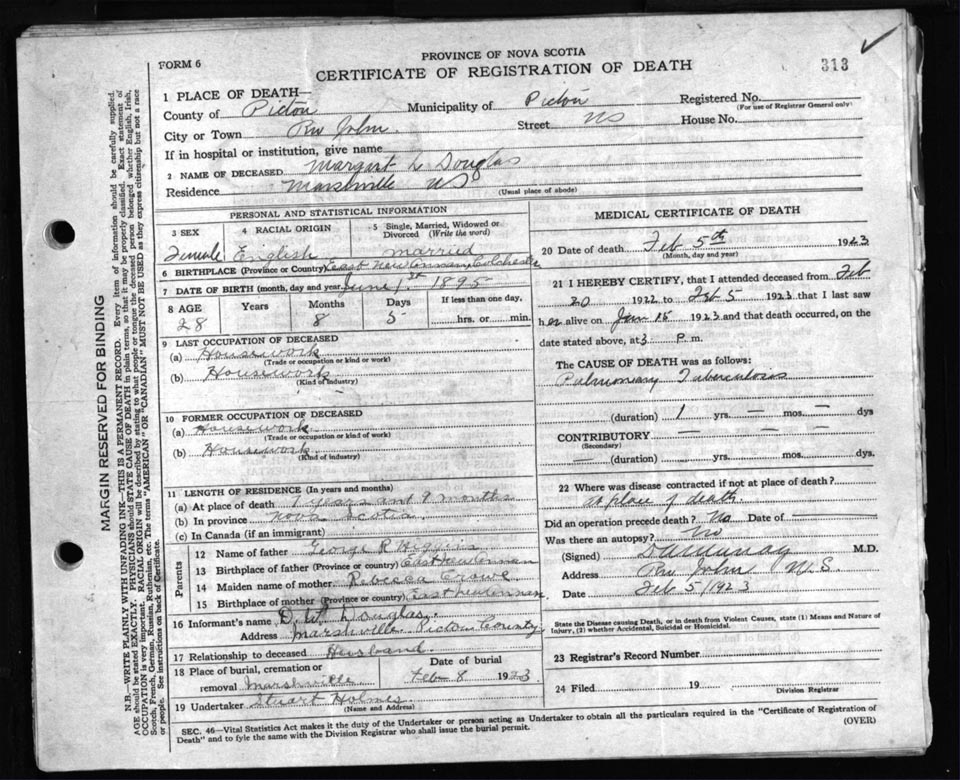 PROVINCE OF NOVA SCOTIA
FORM 6
CERTIFICATE OF REGISTRATION OF DEATH
313
1 PLACE OF DEATH—
County of Pictou Municipality of Pictou Registered No.
(For use of Registrar General only)
City or Town Riv John Street NS House No.
If in hospital or institution, give name
2 NAME OF DECEASED Margart L Douglas
Residence Marshville NS (Usual place of abode)
PERSONAL AND STATISTICAL INFORMATION
3 SEX 4 RACIAL ORIGIN 5 Single, Married, Widowed or Divorced (Write the word)
Female English married
6 BIRTHPLACE (Province or Country) East New Annan Colchester
7 DATE OF BIRTH (month, day and year) June 1st 1895
8 AGE Years Months Days If less than one day,
28 8 5 hrs. or min.
9 LAST OCCUPATION OF DECEASED
(a) Housework
(Trade or occupation or kind or work)
(b) Housework
(Kind of industry)
10 FORMER OCCUPATION OF DECEASED
(a) Housework
(Trade or occupation or kind of work)
(b) Housework
(Kind of industry)
11 LENGTH OF RESIDENCE (In years and months)
(a) At place of death 1 years and 9 months
(b) In province Nova Scotia
(c) In Canada (if an immigrant)
Parents
12 Name of father George R Higgins
13 Birthplace of father (Province or country) East New Annan
14 Maiden name of mother Rebecca Crowe
15 Birthplace of mother (Province or country) East New Annan
16 Informant's name D. W. Douglas
Address Marshville Pictou County
17 Relationship to deceased Husband
18 Place of burial, cremation or Date of burial
removal Marshville Feb 8 1923
19 Undertaker Stuart Holmes
(Name and Address)
MEDICAL CERTIFICATE OF DEATH
20 Date of death Feb 5th 1923
(Month, day and year)
21 I HEREBY CERTIFY, that I attended deceased from Feb
20 1922 to Feb 5 1923 that I last saw
her alive on Jan 15 1923 and that death occurred, on the
date stated above, at 3 P. m.
The CAUSE OF DEATH was as follows:
Pulmonary Tuberculosis
(duration) 1 yrs. — mos. — dys
CONTRIBUTORY — — —
(Secondary)
— (duration) — yrs. — mos. — dys.
22 Where was disease contracted if not at place of death?
at place of death.
Did an operation precede death? No Date of —
Was there an autopsy? No
(Signed) M.D.
Address Riv John N.S.
Date Feb 5/1923
State the Disease causing Death, or in death from Violent Causes, state (1) Means and Nature of
Injury, (2) whether Accidental, Suicidal or Homicidal.
23 Registrar's Record Number
24 Filed 19
Division Registrar
SEC. 46—Vital Statistics Act makes it the duty of the Undertaker or person acting as Undertaker to obtain all the particulars required in the "Certificate of Registration of
Death" and to fyle the same with the Division Registrar who shall issue the burial permit. (OVER)
MARGIN RESERVED FOR BINDING
N.B.—WRITE PLAINLY WITH UNFADING INK—THIS IS A PERMANENT RECORD. Every item of information should be carefully supplied.
AGE should be stated EXACTLY. PHYSICIANS should STATE CAUSE OF DEATH in plain terms, so that it may be properly classified. Exact statement of
OCCUPATION is very important. RACIAL ORIGIN will be described by stating to what people or tongue the deceased person belonged whether English, Irish,
Scotch, French, German, Russian, Ruthenian, etc. The terms "AMERICAN" OR "CANADIAN" MUST NOT BE USED as they express citizenship but not a race
or people. See instructions on back of Certificate.